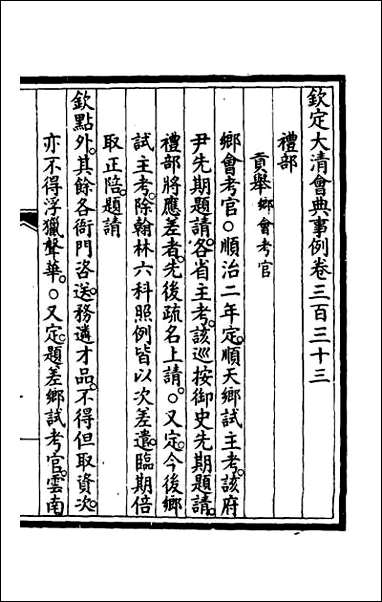 欽定大清會典事例卷三百三十三
禮部
貢舉 鄉會考官
鄉會考官○順治二年定順天鄉試主考該府
尹先期題請各省主考該巡按御史先期題請
禮部將應差者先後疏名上請○又定今後鄉
試主考除翰林六科照例皆以次差遣臨期倍
取正陪題請
欽點外其餘各衙門咨送務遴才品不得但取資次
亦不得浮獵聲華○又定題差鄉試考官雲南